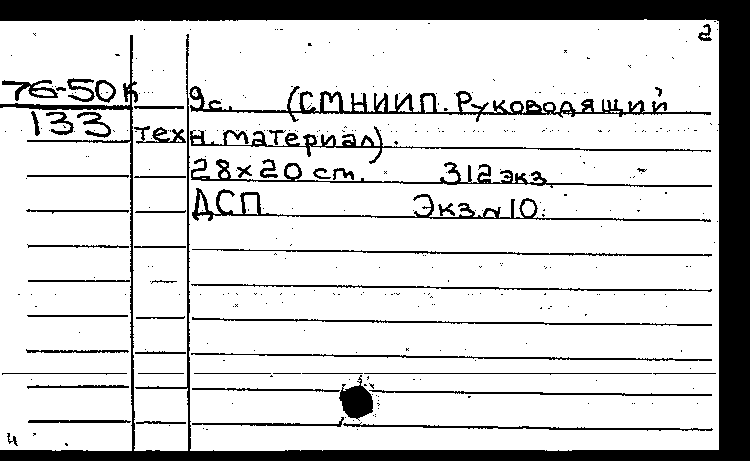 2
76-50к 9с. (СМНИИП. Руководящий
133 техн. материал).
28х20 cm. 312 экз.
ДСП Экз. №10.
ч